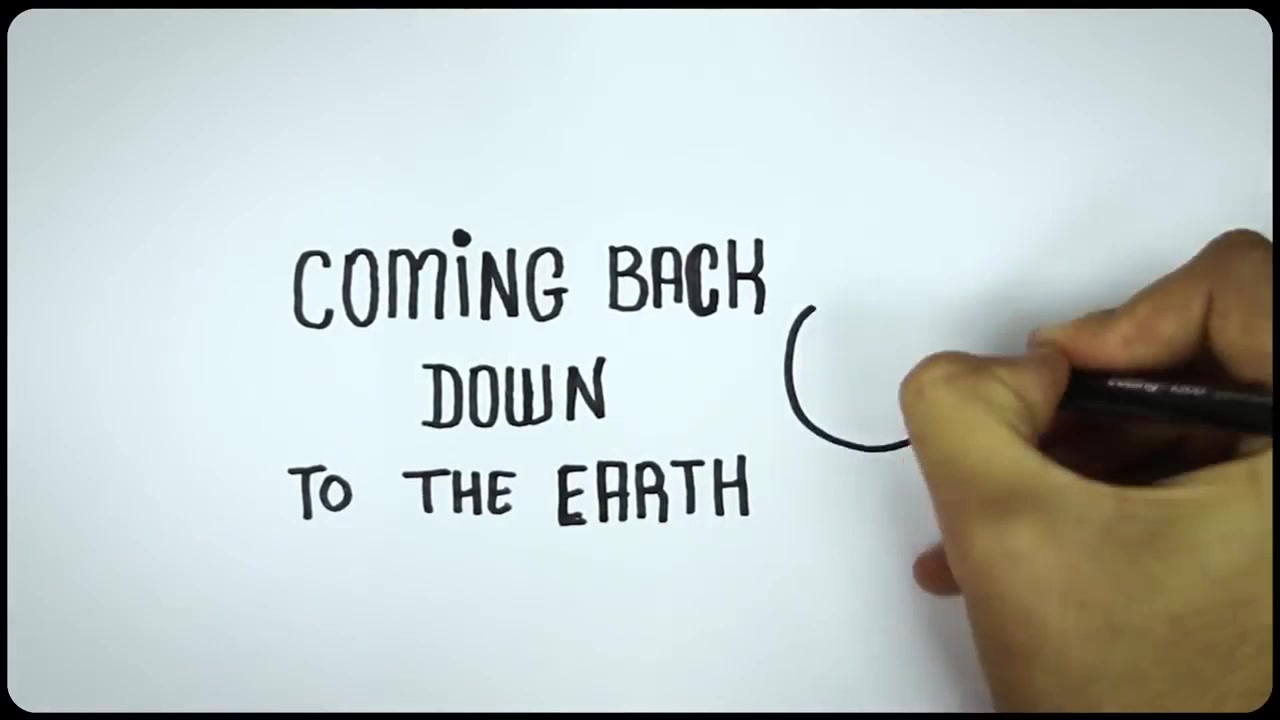 COMiNG BACK
DOWN
TO THE EARTH